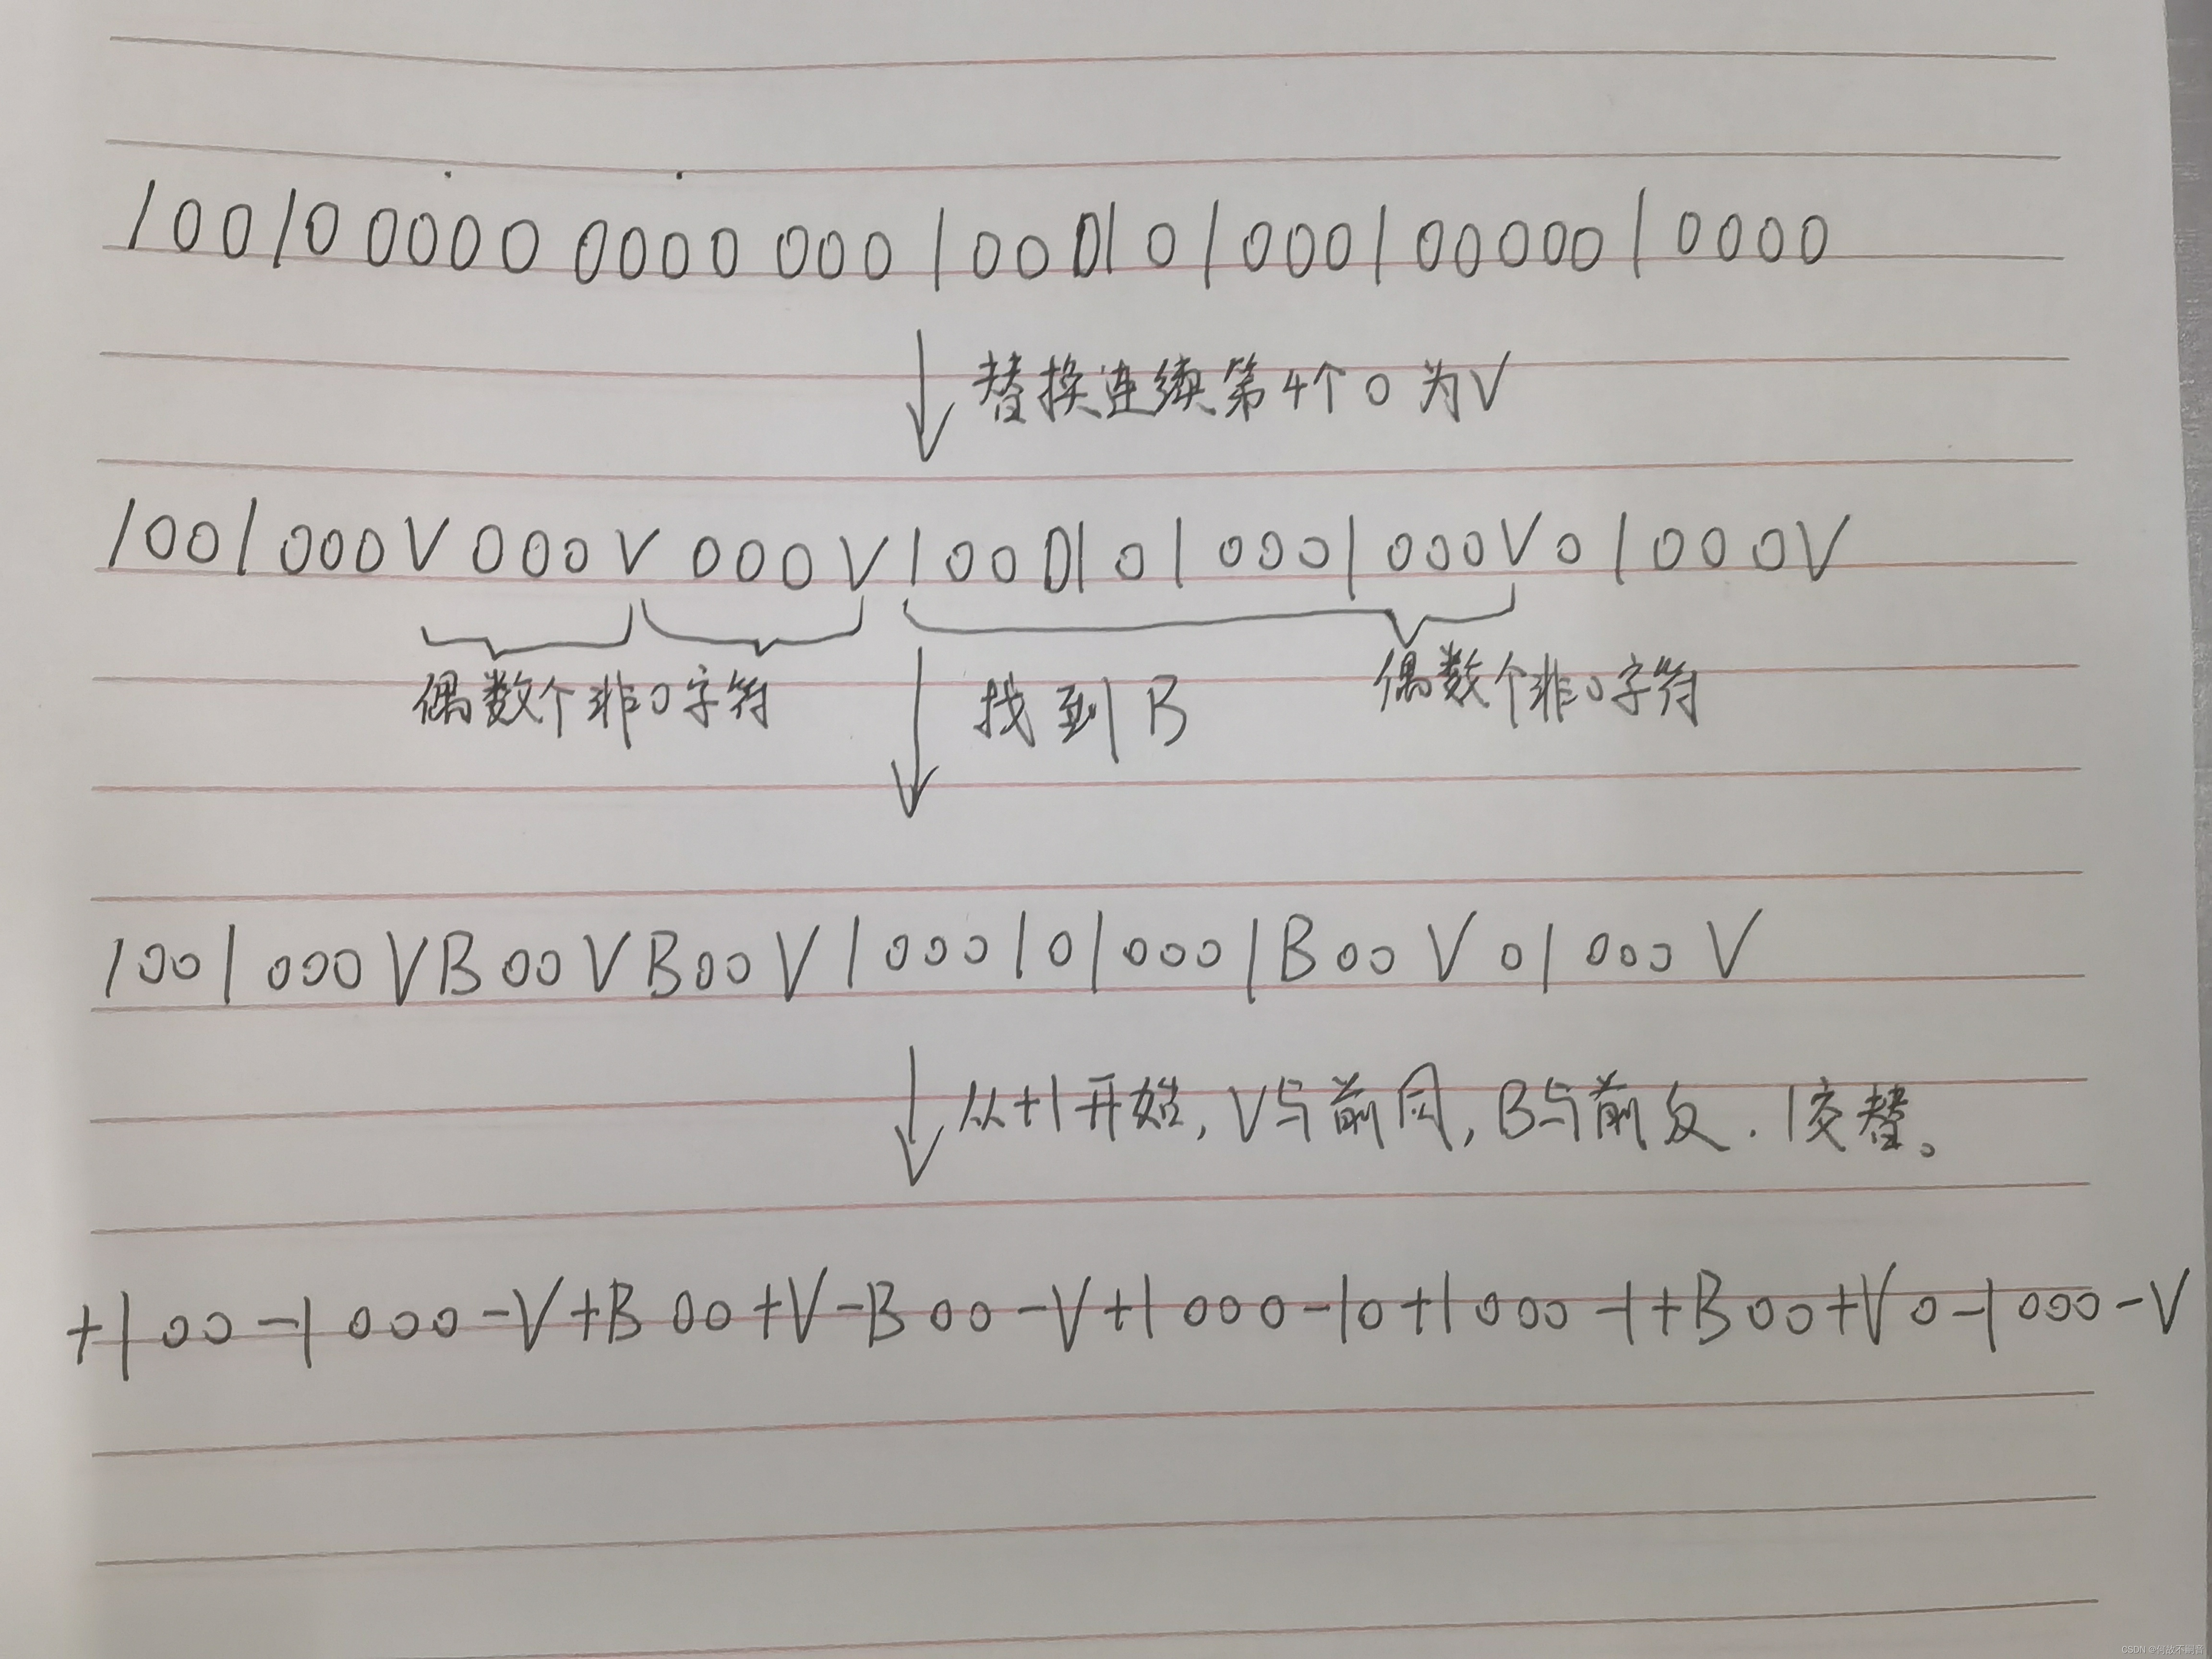 100100000000000010001010001000001 0000
替换连续第4个0为V
1001000V000V000V10001010001000V01000V
偶数个非0字符
找到B
偶数个非0字符
1001000VB00VB00V10001010001B00V01000V
从+1开始,V与前同,B与前反.1交替。
+100-1000-V+B00+V-B00-V+1000-10+1000-1+B00+V0-1000-V
CSDN @何故不嗣音